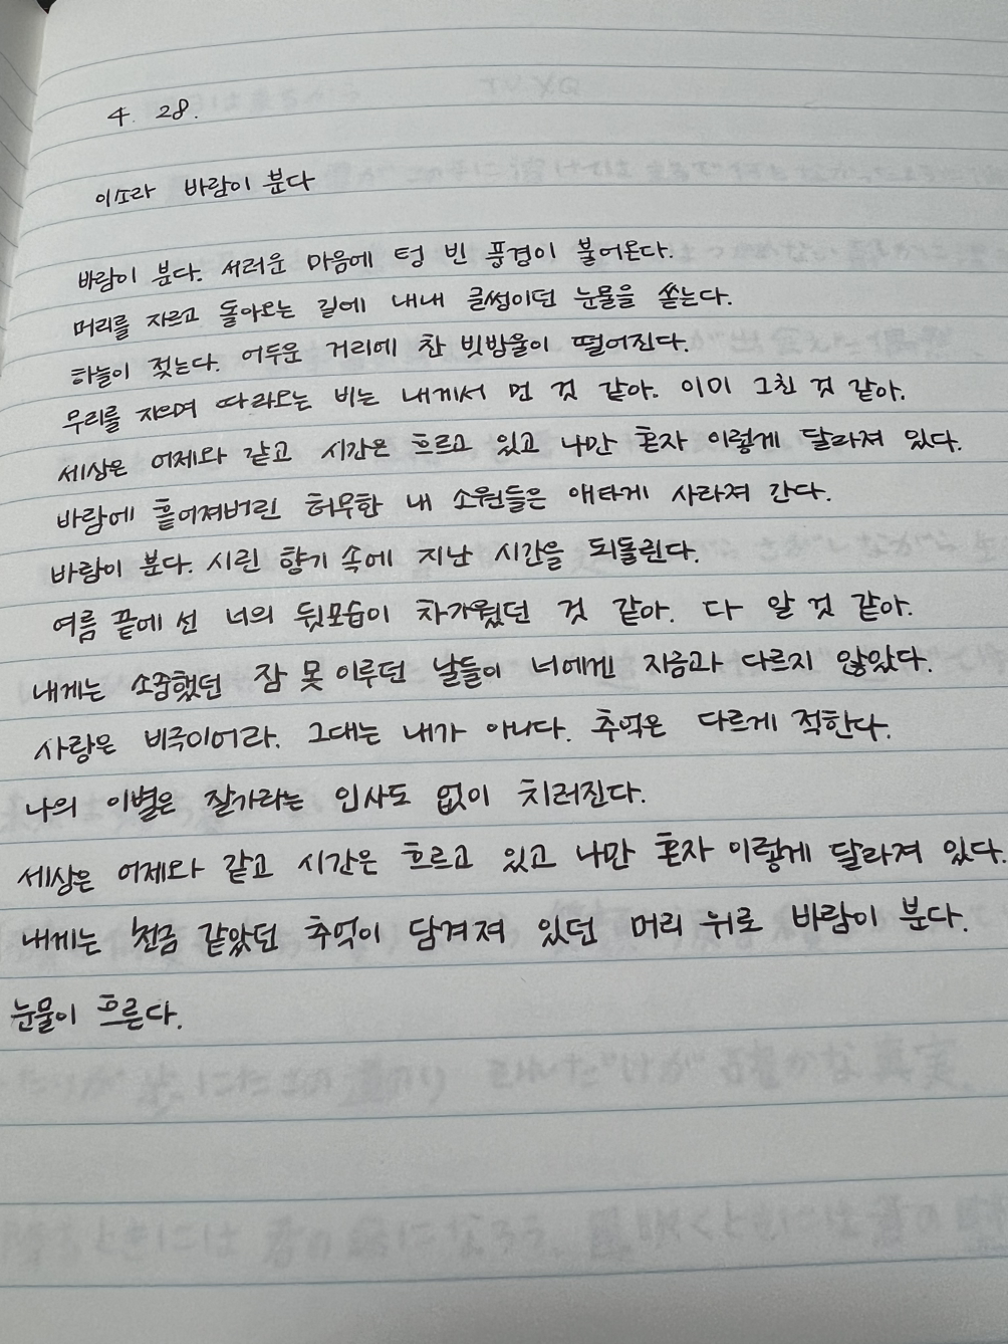 4. 28.
이소라 바람이 분다
바람이 분다. 서러운 마음에 텅 빈 풍경이 불어온다.
머리를 자르고 돌아오는 길에 내내 글썽이던 눈물을 쏟는다.
하늘이 젖는다. 어두운 거리에 찬 빗방울이 떨어진다.
무리를 지으며 따라오는 비는 내게서 먼 것 같아. 이미 그친 것 같아.
세상은 어제와 같고 시간은 흐르고 있고 나만 혼자 이렇게 달라져 있다.
바람에 흩어져버린 허무한 내 소원들은 애타게 사라져 간다.
바람이 분다. 시린 향기 속에 지난 시간을 되돌린다.
여름 끝에 선 너의 뒷모습이 차가웠던 것 같아. 다 알 것 같아.
내게는 소중했던 잠 못 이루던 날들이 너에겐 지금과 다르지 않았다.
사랑은 비극이어라. 그대는 내가 아니다. 추억은 다르게 적한다.
나의 이별은 잘가라는 인사도 없이 치러진다.
세상은 어제와 같고 시간은 흐르고 있고 나만 혼자 이렇게 달라져 있다.
내게는 천금 같았던 추억이 담겨져 있던 머리 위로 바람이 분다.
눈물이 흐른다.